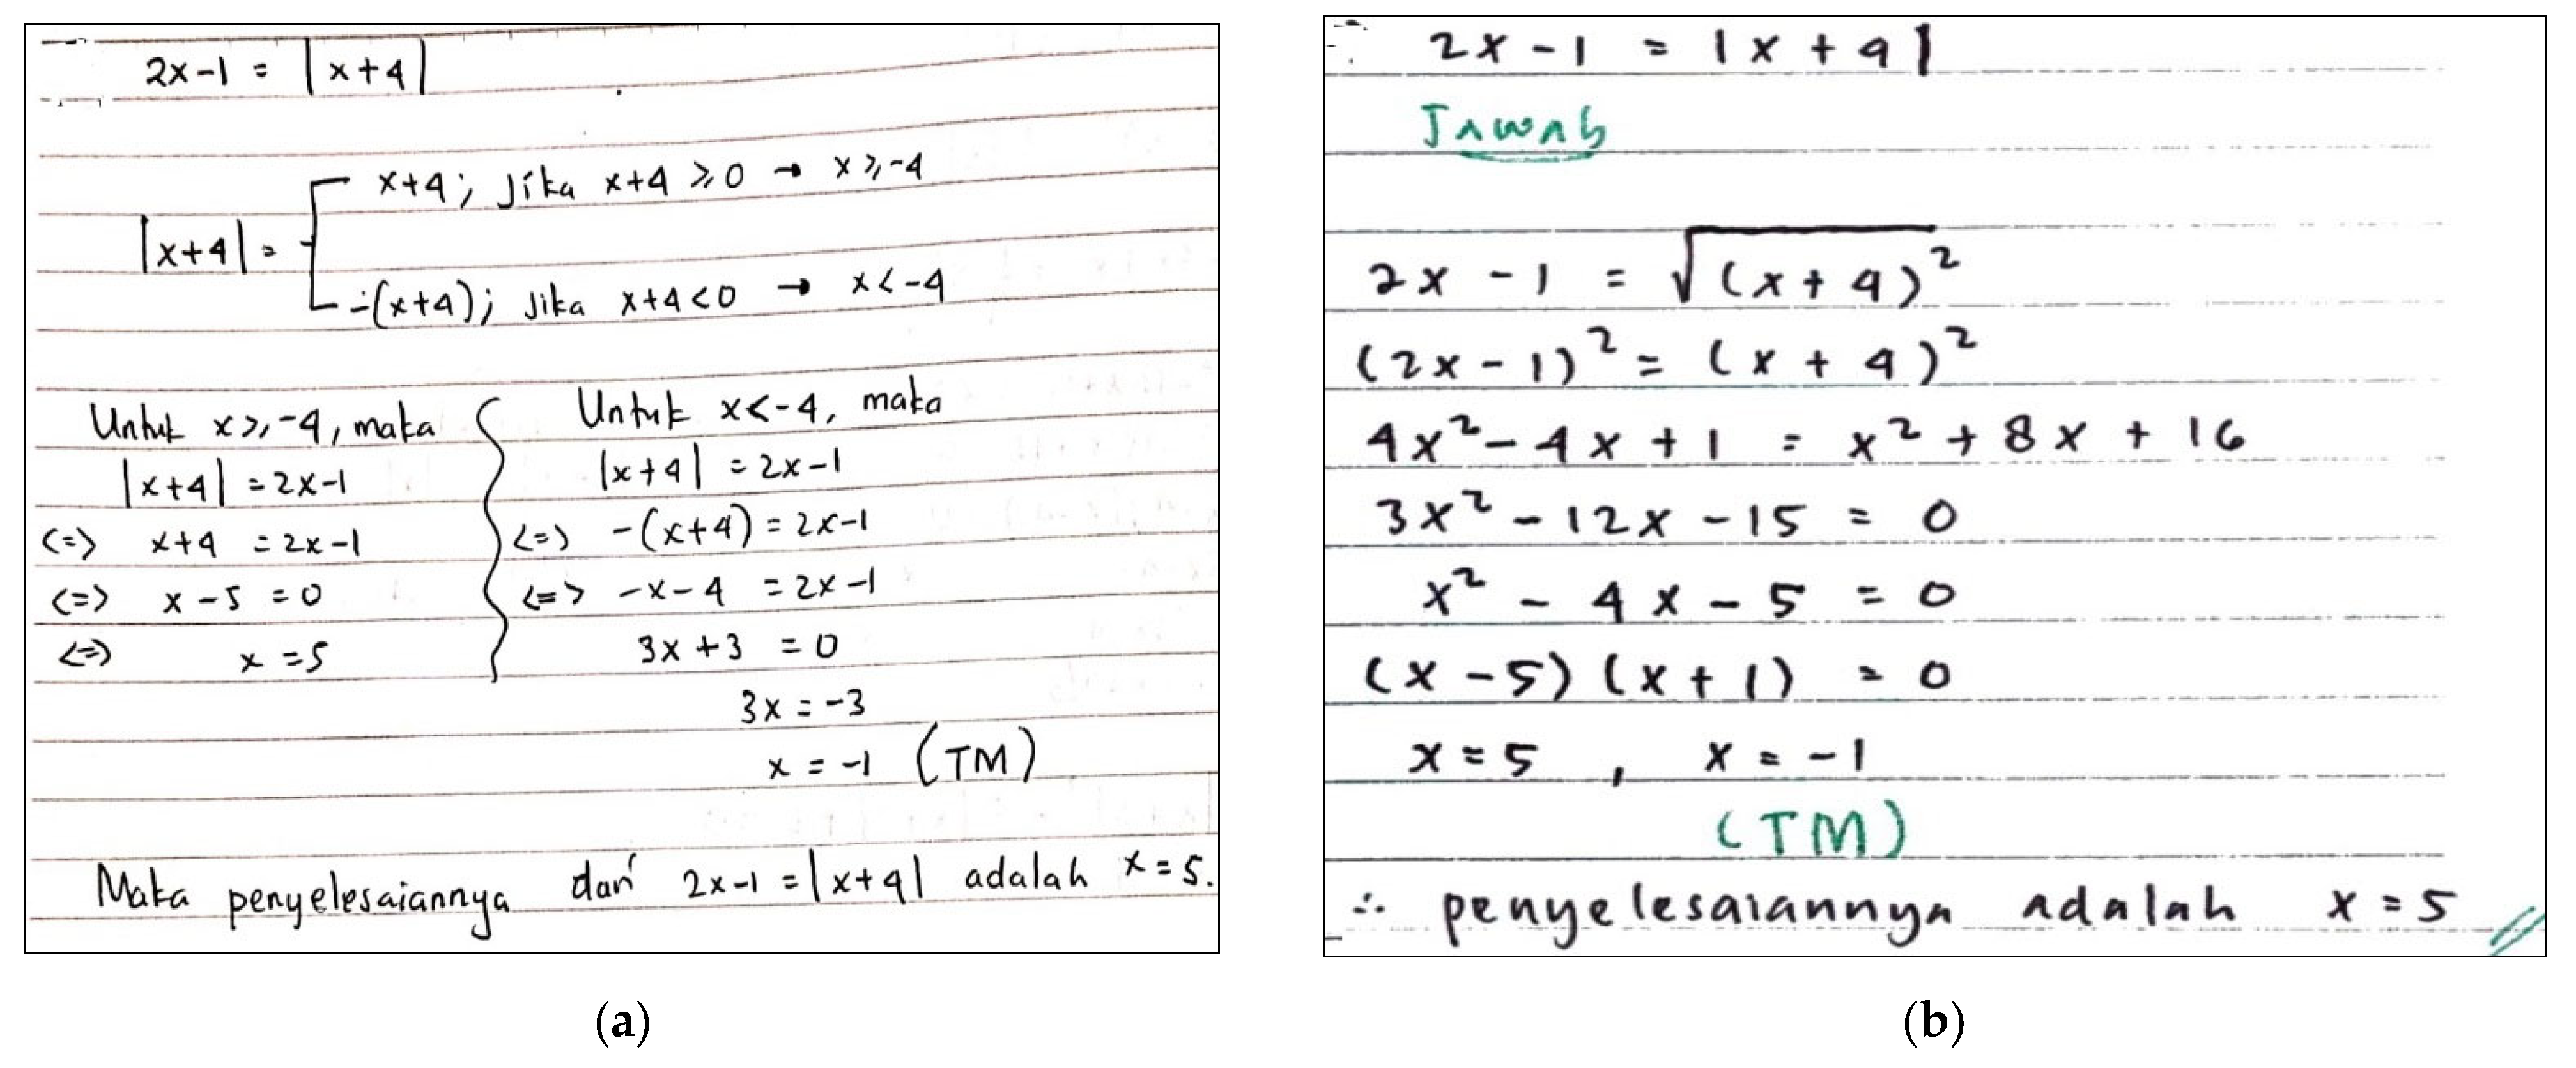 2x-1 = |x+4|
x+4; Jika x+4 ≥ 0 → x ≥ -4
|x+4| =
-(x+4); Jika x+4 < 0 → x < -4
Untuk x ≥ -4, maka
|x+4| = 2x-1
<=> x+4 = 2x-1
<=> x-5 = 0
<=> x = 5
Untuk x < -4, maka
|x+4| = 2x-1
<=> -(x+4) = 2x-1
<=> -x-4 = 2x-1
3x+3 = 0
3x = -3
x = -1 (TM)
Maka penyelesaiannya dari 2x-1 = |x+4| adalah x = 5.
(a)
2x - 1 = |x + 4|
Jawab
2x - 1 = √(x+4)²
(2x - 1)² = (x + 4)²
4x² - 4x + 1 = x² + 8x + 16
3x² - 12x - 15 = 0
x² - 4x - 5 = 0
(x - 5)(x + 1) = 0
x = 5 , x = -1
(TM)
∴ penyelesaiannya adalah x = 5
(b)